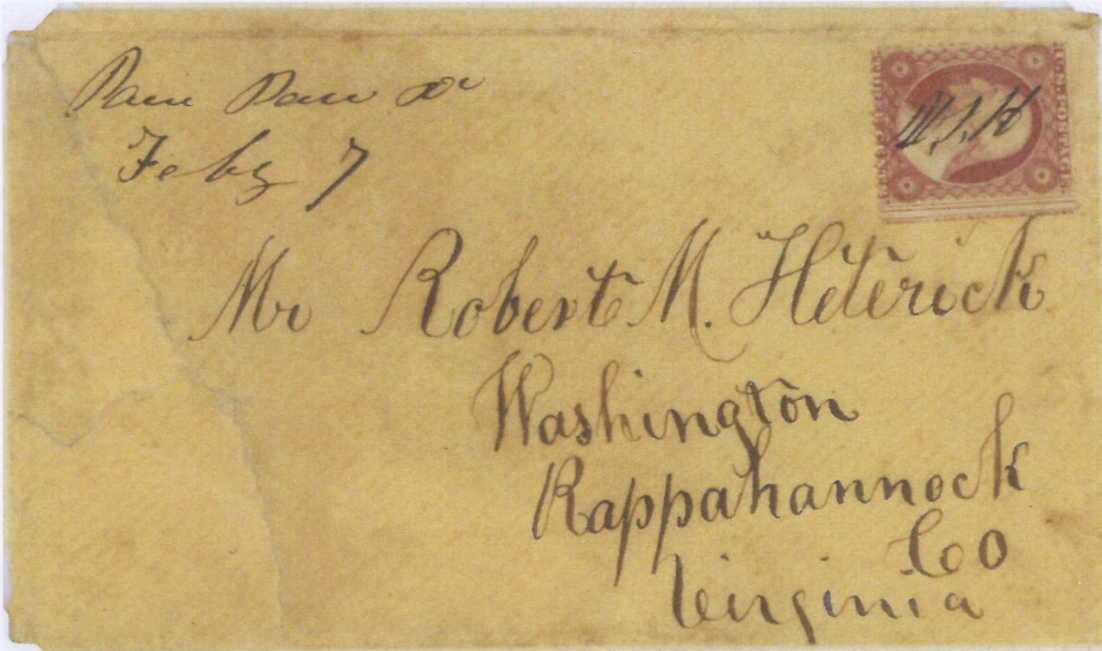 Paw Paw Va
Feby 7
U.S. POSTAGE
Mr Robert M. Heterick
Washington
Rappahannock
Co
Virginia